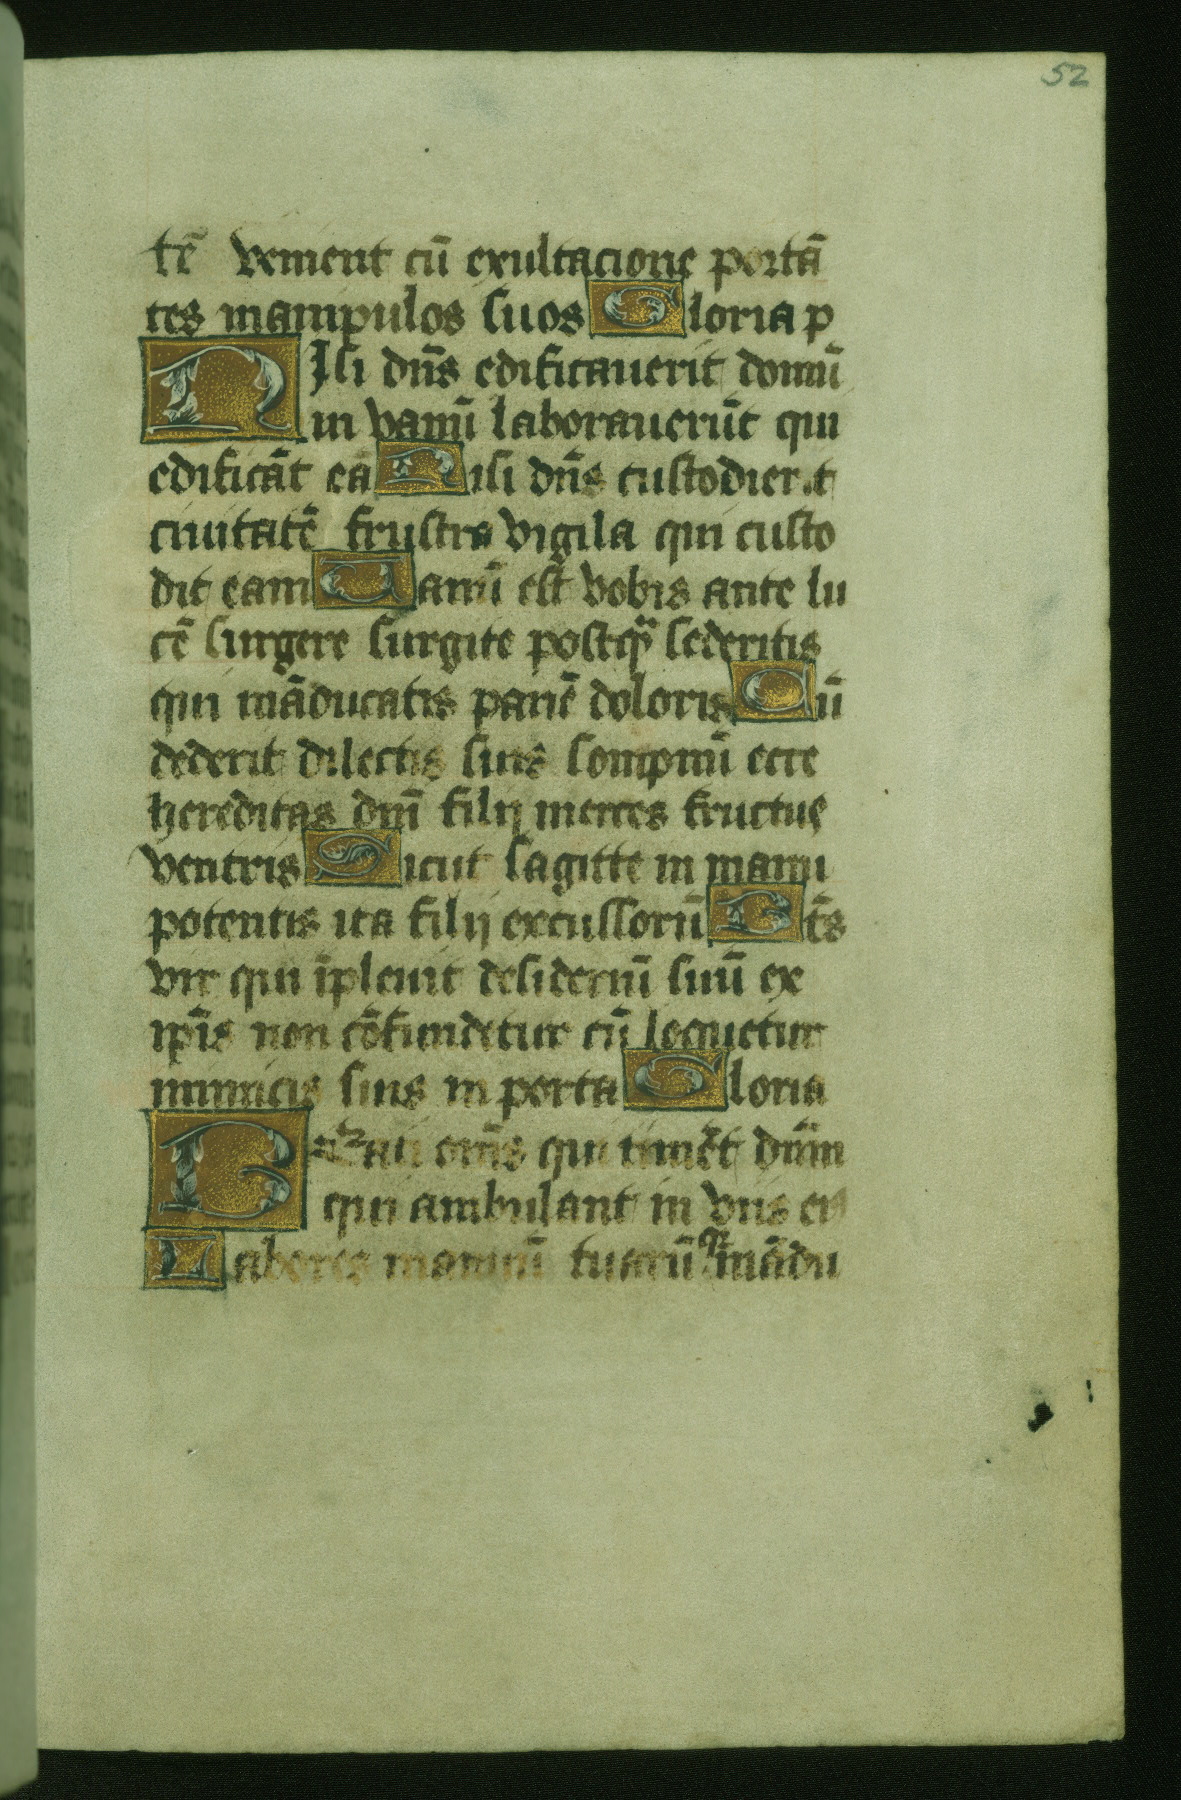 52
tē venient cū exultacione portā
tes manipulos suos Gloria p
NIsi dn̄s edificauerit domū
in vanū laborauerūt qui
edificāt eā Nisi dn̄s custodierit
ciuitatē frustra vigila qui custo
dit eam Uanū est vobis ante lu
cē surgere surgite postq̄ sederitis
qui māducatis panē doloris Cū
dederit dilectis suis sompnū ecce
hereditas dn̄i filij merces fructus
ventris Sicut sagitte in manu
potentis ita filij excussorū Bt̄s
vir qui īpleuit desideriū suū ex
ip̄is non cōfundetur cū loquetur
inimicis suis in porta Gloria
Beati om̄s qui timēt dn̄m
qui ambulant in viis eiꝰ
Labores manuū tuarū qr̄ mādu